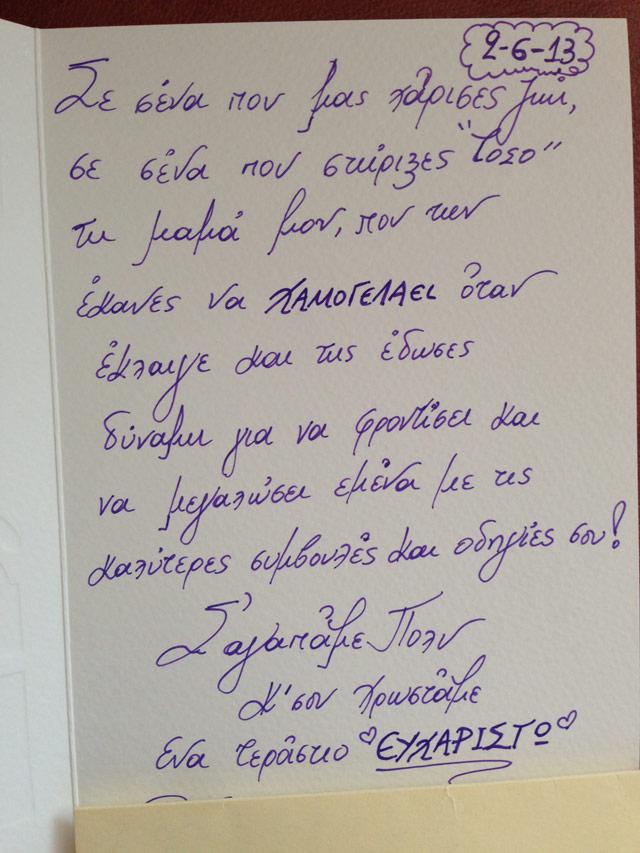 2-6-13
Σε σένα που μας χάρισες ζωή,
σε σένα που στήριξες "τόσο"
τη μαμά μου, που την
έκανες να ΧΑΜΟΓΕΛΑΕΙ όταν
έκλαιγε και της έδωσες
δύναμη για να φροντίσει και
να μεγαλώσει εμένα με τις
καλύτερες συμβουλές και οδηγίες σου!
Σ'αγαπάμε Πολύ
Κ'σου χρωστάμε
Ένα τεράστιο ♡ΕΥΧΑΡΙΣΤΩ♡